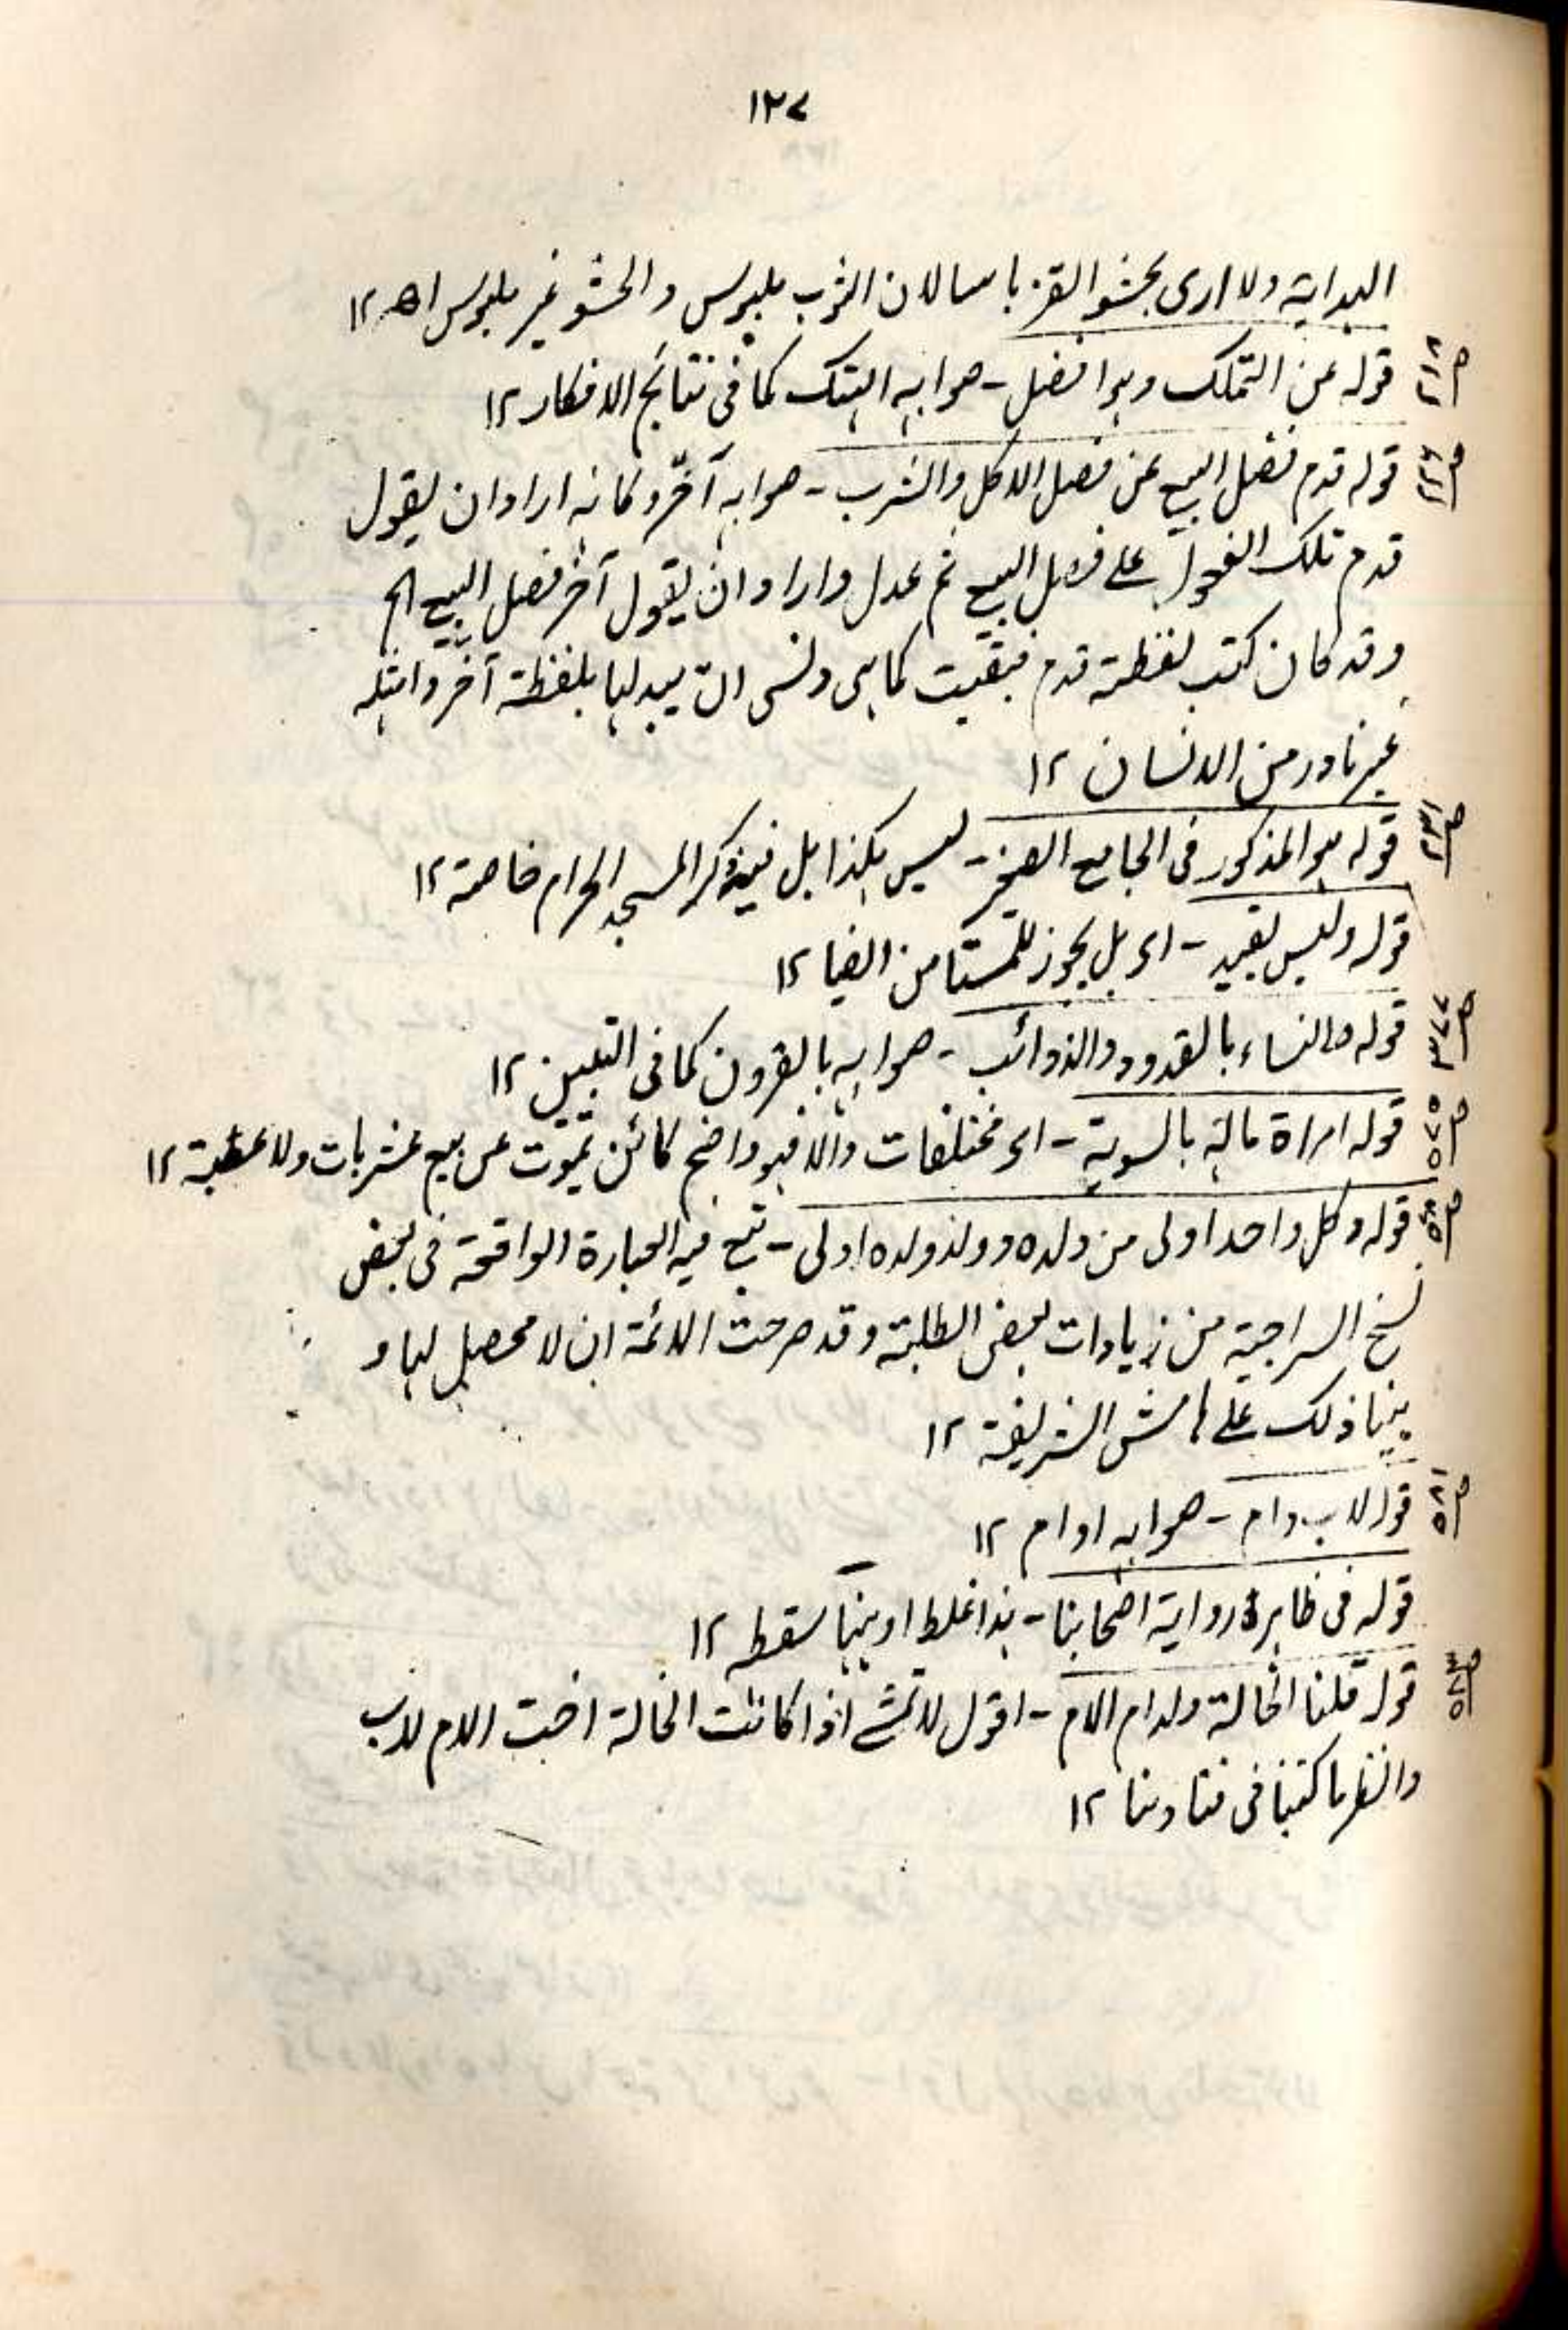 ١٢٧
الہدایۃ ولا اری بحشو القز باسا لان الثوب ملبوس والحشو غیر ملبوس اھ ١٢
ص٢١٨ قوله عن التملک وہو افضل - صوابہ الہتک کما فی نتائج الافکار ١٢
ص٢٢٦ قوله قدم فصل البیع عن فصل الاکل والشرب - صوابہ آخر وکانہ اراد ان یقول
قدم تلک الفصول علی فصل البیع ثم عدل واراد ان یقول آخر فصل البیع الخ
وقد کان کتب لفظۃ قدم فبقیت کما ہی ونسی ان یبدلہا بلفظۃ آخر وامثلہ
غیر نادر من الانسان ١٢
ص٢٣١ قوله ہو المذکور فی الجامع الصغیر - لیس ہکذا بل فیہ ذکر المسجد الحرام خاصۃ ١٢
قوله ولیس بقید - ای بل یجوز للمستامن ایضا ١٢
ص٣٧٧ قوله والنساء بالقدود والذوائب - صوابہ بالقرون کما فی التبیین ١٢
ص٥٧٥ قوله امراۃ مالہ بالسویۃ - ای مختلفات والا فہو واضح کائن تموت عن بیع عشر بات ولا عصبۃ ١٢
ص٥٨٠ قوله وکل واحد اولی من ولده وولد ولده اولی - تبع فیہ العبارۃ الواقعۃ فی بعض
نسخ السراجیۃ من زیادات بعض الطلبۃ وقد صرحت الائمۃ ان لا محصل لہا و
بینا ذلک علی ہامش الشریفۃ ١٢
ص٥٨١ قوله لاب وام - صوابہ او ام ١٢
قوله فی ظاہرۃ روایۃ اصحابنا - ہذا غلط او ہنہا سقط ١٢
ص٥٨٣ قوله قلنا الخالۃ ولد ام الام - اقول لا تمشے اذا کانت الخالۃ اخت الام لاب
وانظر ما کتبنا فی فتاونا ١٢